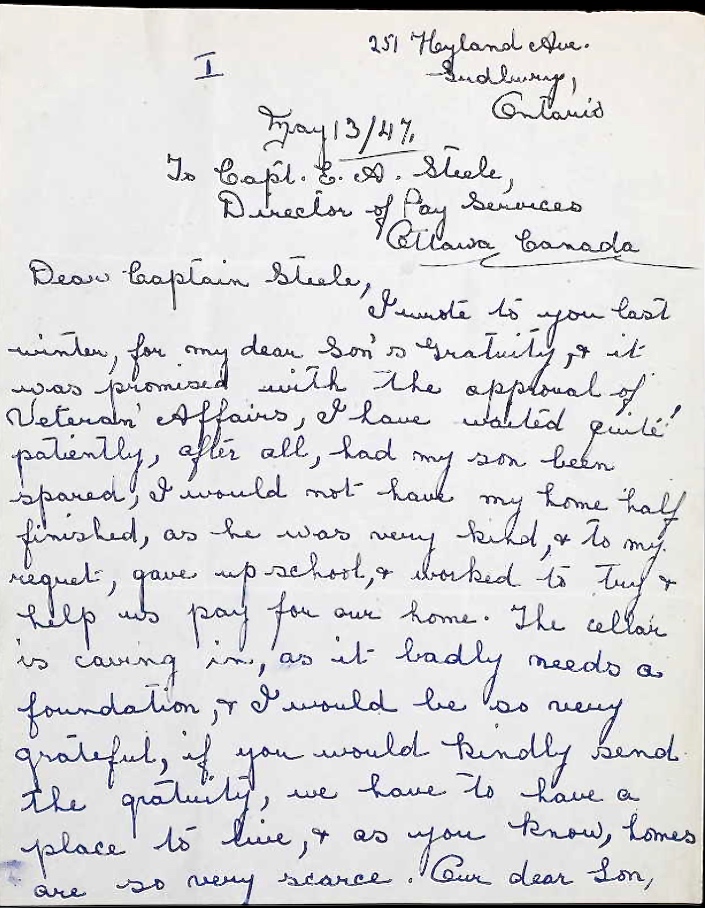 I
251 Hyland Ave.
Sudbury,
Ontario
May 13/47.
To Capt. E. A. Steele,
Director of Pay Services
Ottawa Canada
Dear Captain Steele,
I wrote to you last
winter, for my dear Son's Gratuity, & it
was promised with the approval of
Veteran' Affairs, I have waited quite
patiently, after all, had my son been
spared, I would not have my home half
finished, as he was very kind, & to my
regret, gave up school, & worked to try &
help us pay for our home. The cellar
is caving in, as it badly needs a
foundation, & I would be so very
grateful, if you would kindly send
the gratuity, we have to have a
place to live, & as you know, homes
are so very scarce. Our dear Son,